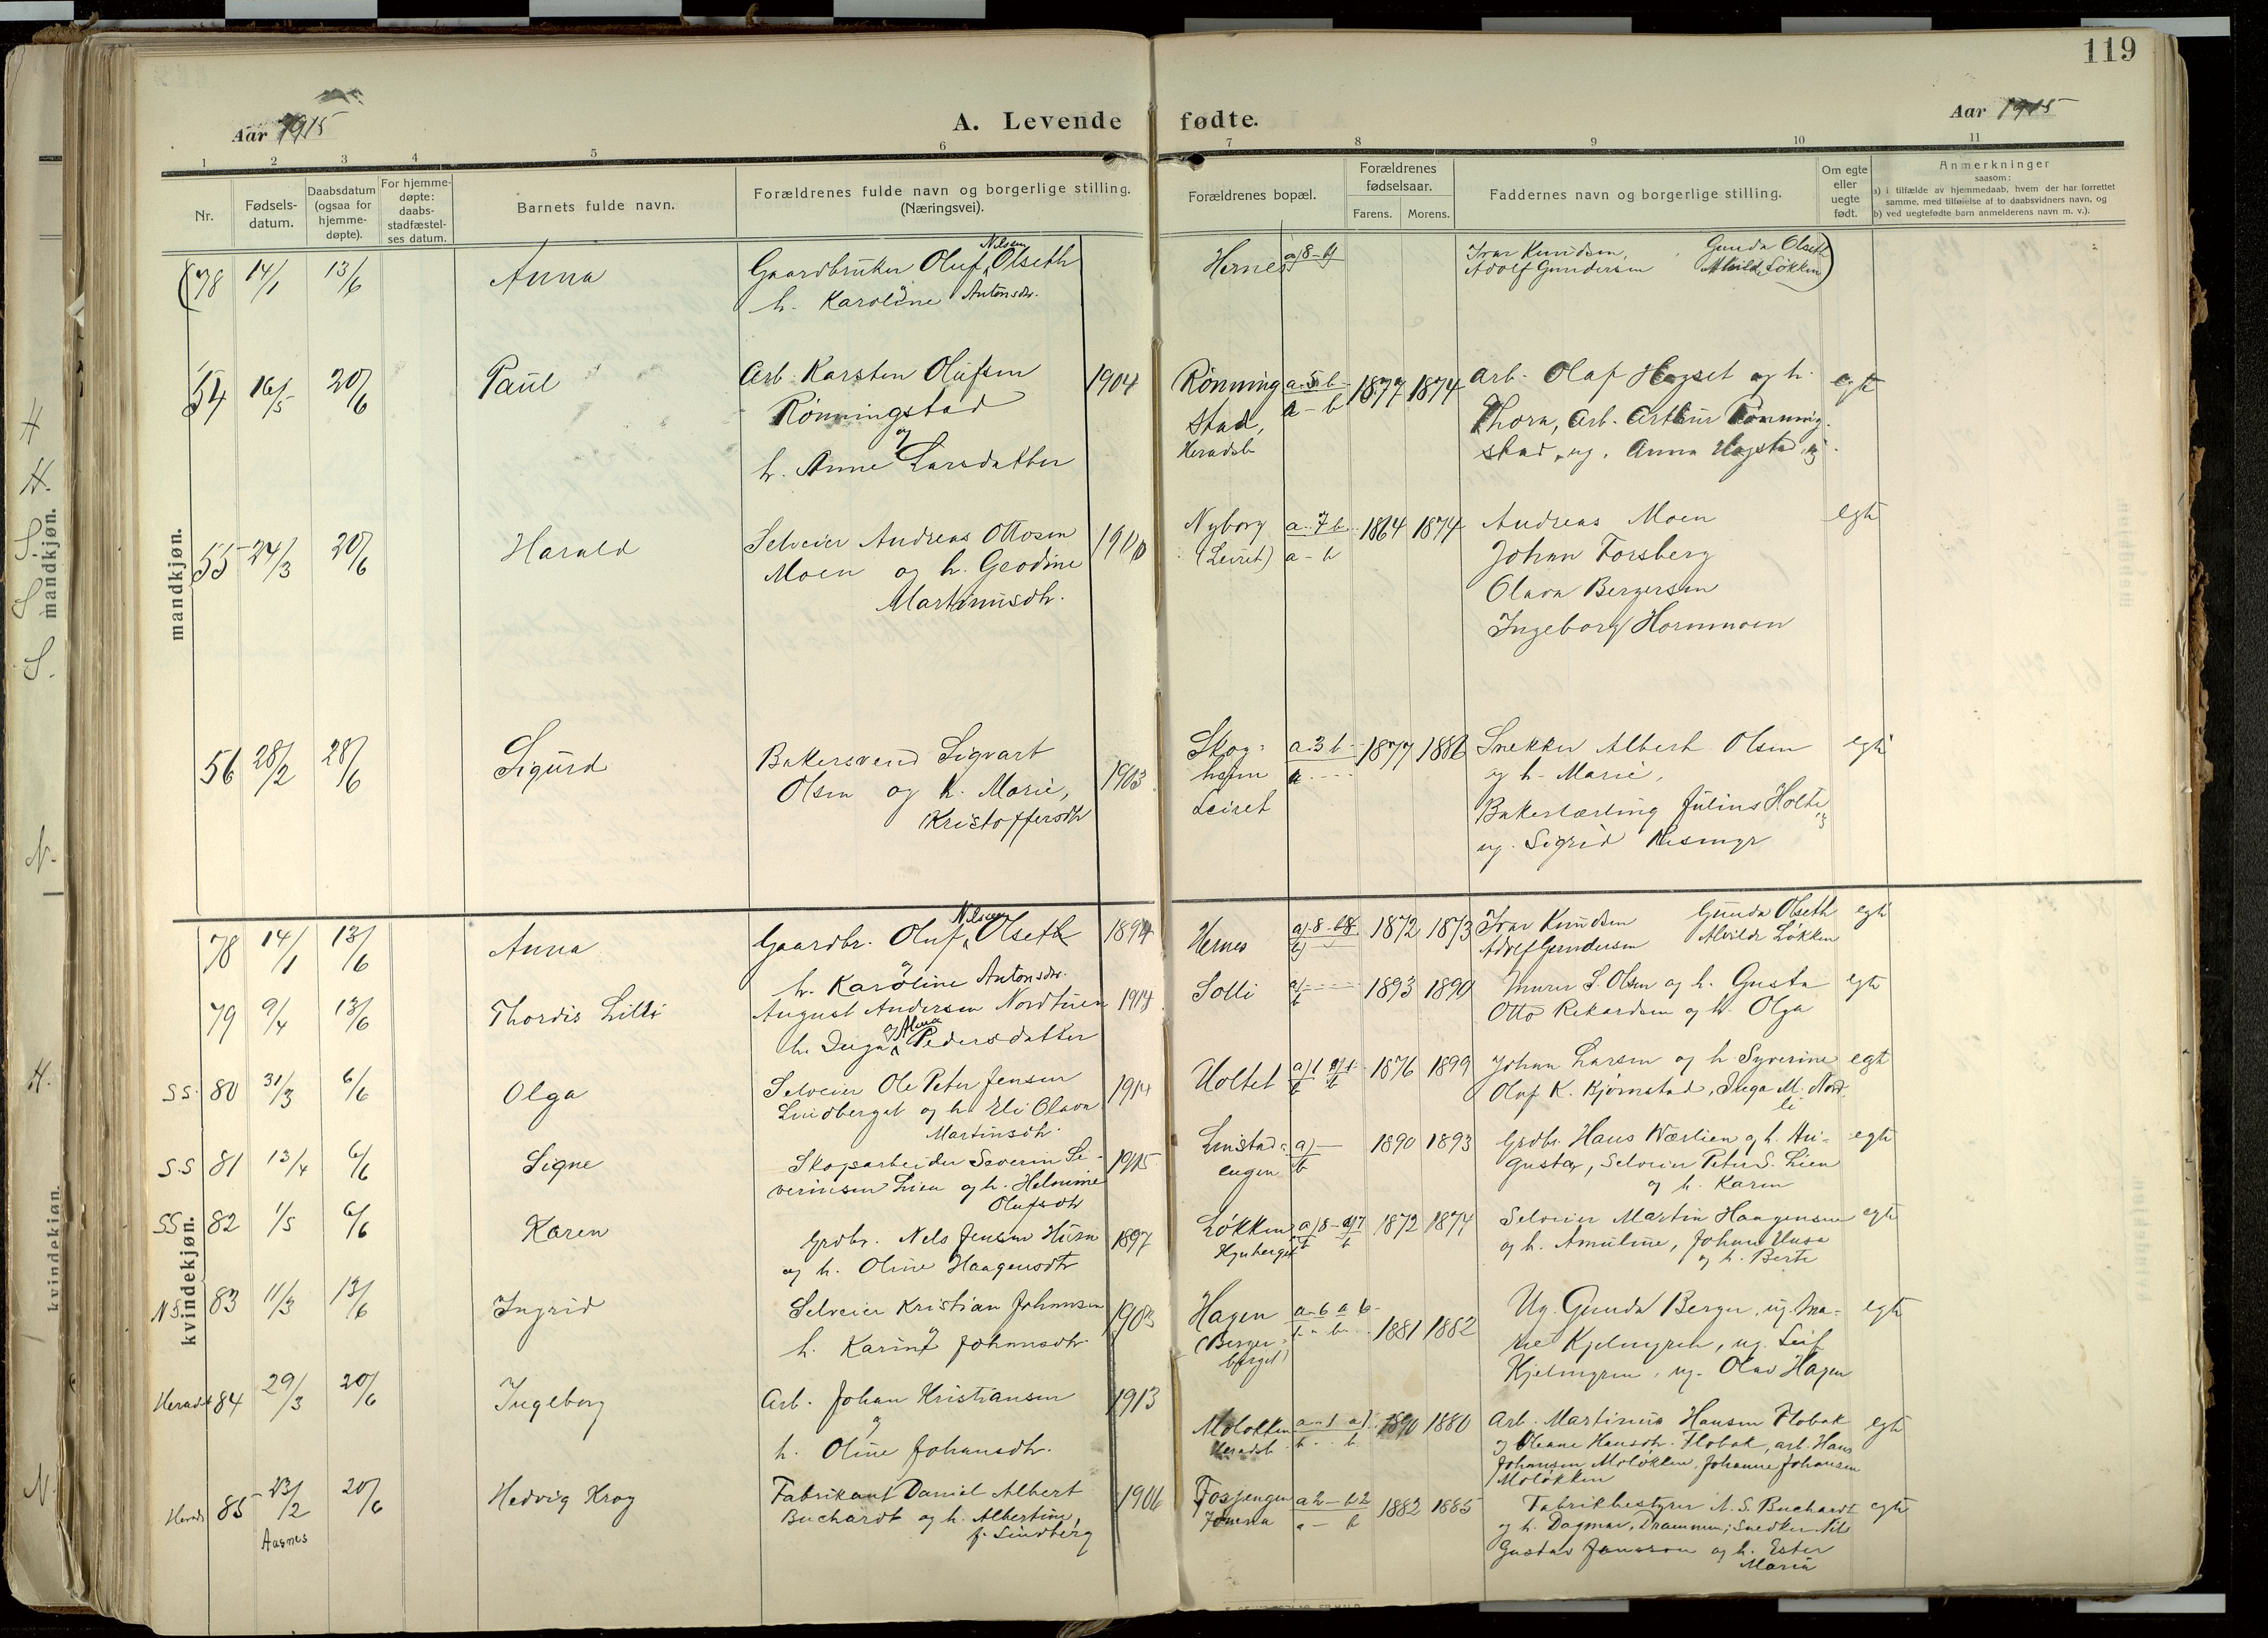 119
Aar 1915
A. Levende fødte.
Aar 1915
1 2 3 4 5 6 7 8 9 10 11
Nr.
Fødsels-
datum.
Daabsdatum
(ogsaa for
hjemme-
døpte).
For hjemme-
døpte:
daabs-
stadfæstel-
ses datum.
Barnets fulde navn.
Forældrenes fulde navn og borgerlige stilling.
(Næringsvei).
Forældrenes bopæl.
Forældrenes
fødselsaar.
Farens. Morens.
Faddernes navn og borgerlige stilling.
Om egte
eller
uegte
født.
Anmerkninger
saasom:
a) i tilfælde av hjemmedaab, hvem der har forrettet
samme, med tilføielse af to daabsvidners navn, og
b) ved uegtefødte barn anmelderens navn m. v.).
mandkjøn.
mandkjøn.
(78 14/1 13/6 Anna
Gaardbruker Oluf Nilsen Olseth
og
h. Karoline Antonsdr.
Hernes a) 8 - b)
Ivar Knudsen, Gunda Olseth
Adolf Gundersen Alvilde Løkken)
54 16/5 20/6 Paul
Arb. Karsten Olufsen
Rønningstad
og
h. Anne Larsdatter
1904
Rønning
stad,
Heradsb
a-5 b-
a - b
1877 1874
Arb. Olaf Hagset og h.
Thora, Arb. Arthur Rønning
stad, ug. Anna Hagstad, ug.
egte
55 24/3 20/6 Harald
Selveier Andreas Ottosen
Moen og h. Geodine
Martinusdtr.
1900
Nyborg
(Leiret)
a-7 b-
a - b
1864 1874
Andreas Moen
Johan Forsberg
Olava Bergersen
Ingeborg Hornmoen
egte
56 28/2 28/6 Sigurd
Bakersvend Sigvart
Olsen og h. Marie,
Kristoffersdtr
1903
Skog-
heim
Leiret
a 3 b -
a - - - -
1877 1886
Snekker Albert Olsen
og h. Marie,
Bakerlærling Julius Holte,
ug. Sigrid Resmyr
egte
78 14/1 13/6 Anna
Gaardbr. Oluf Nilsen Olseth
og
h. Karoline Antonsdr.
1894
Hernes
a) 8 - b 8
b)
1872 1873
Ivar Knudsen Gunda Olseth
Adolf Gundersen Alvilde Løkken
egte
79 9/4 13/6 Thordis Lilli
August Andersen Nordtuen
og
h. Inga Alma Pedersdatter
1914
Solli
a) - - - -
b
1893 1890
Murer S. Olsen og h. Gusta
Otto Rikardsen og h. Olga
egte
SS. 80 31/3 6/6 Olga
Selveier Ole Peter Jensen
Lindberget og h. Eli Olava
Martinsdtr.
1914
Holtet
1876 1899
Johan Larsen og h Syverine
Oluf K. Bjørnstad, Inga M. Nord
li
egte
S.S 81 13/4 6/6 Signe
Skogsarbeider Severin Se-
verinsen Lien og h. Helmine
Olufsdtr
1915
Linstad-
engen
a) -
b
1890 1893
Grdbr. Hans Værlien og h. Au-
gusta, Selveier Peter S. Lien
og h. Karen
egte
SS 82 1/5 6/6 Karen
kvindekjøn.
kvindekjøn.
Grdbr. Nels Jensen Husu
og h. Oline Haagensdtr
1897
Løkken
1872 1874
Selveier Martin Haagensen
og h. Amuline, Johan Husu
og h. Berte
egte
N.S. 83 11/3 13/6 Ingrid
Selveier Kristian Johansen
og
h. Karine Johansdtr.
1903
Hagen
(Berger-
berget)
a-6 a 6-
b - b -
1881 1882
Ug. Gunda Berger, ug. Ma-
rie Kjelmyren, ug. Leif
Kjelmyren, ug. Olav Hagen
egte
Heradsb 84 29/3 20/6 Ingeborg
Arb. Johan Kristiansen
og
h. Oline Johansdtr.
1913
Moløkken
Heradsb
a-1 a)
b - - b
1890 1880
Arb. Martinius Hansen Flobak
og Oleane Hansdtr. Flobak, arb. Hans
Johansen Moløkken, Johanne Johansen
Moløkken
egte
Herads 85 23/2 20/6 Hedvig Krog
Aasnes
Fabrikant Daniel Albert
Buchardt og h. Albertine,
f. Lindberg
1906
Jømna
a 2 - b 2
a - b
1882 1885
Fabrikbestyrer A. S. Buchardt
og h. Dagmar, Drammen; Snedker Nils
Gustav Jansson og h. Ester
Maria
egte